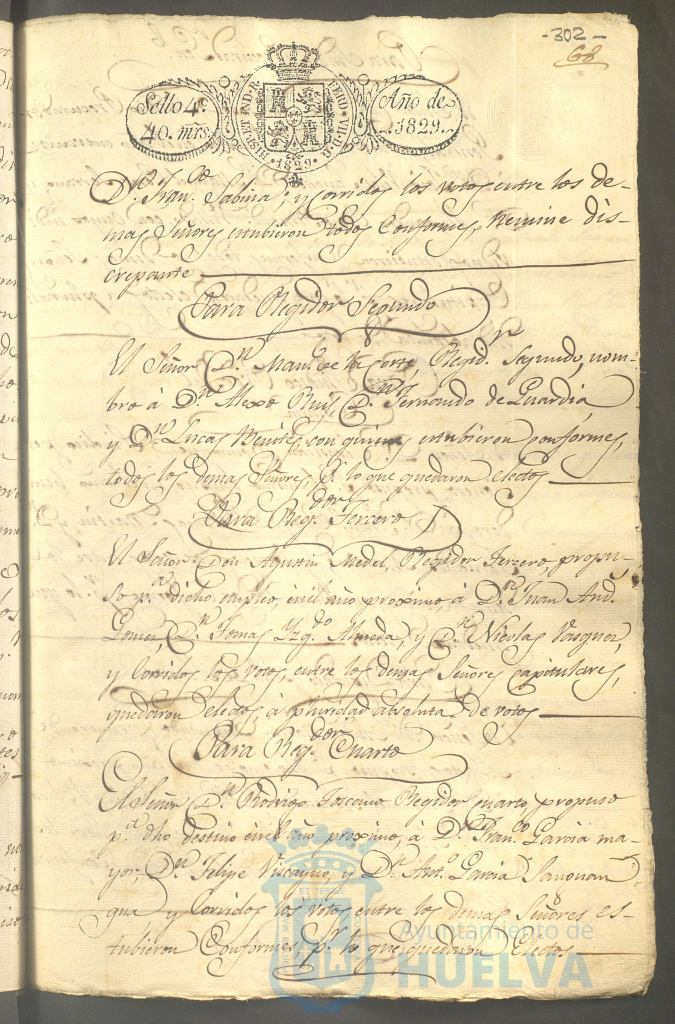 -302-
68
Sello 4º
40. mrs
HISP. ET IND. R.
FERD. VII. D. G.
·1829·
Año de
1829.
Dn. Franco. Sabina; y corridos los votos entre los de-
mas Señores estubieron todos Conformes, Nemine dis-
crepante
Para Regidor Segundo
El Señor Dn. Manl. de la Corte, Regidr. Segundo, nom-
bro à Dn. Alexo Ruiz, Dn. Fernando de Guardia,
y Dn. Lucas Benites, con quienes estubieron conformes,
todos los demas Señores, pr. lo que quedaron electos
Para Regdor. Tercero
El Señor Don Agustin Medel, Regidor Tercero, propu-
so pa. dicho empleo, en el año proximo, à Dn. Juan And.
Gomez, Dn. Tomas Yzqdo. Almeda, y Dn. Nicolas Vasquez,
y Corridos los votos, entre los demas Señores capitulares,
quedaron electos, à pluridad absoluta de votos
Para Regdor. Cuarto
El Señor Dn. Rodrigo Toscano Regidor cuarto, propuso
pa. dho destino en el año proximo, à Dn. Franco. Garcia ma-
yor, Dn. Felipe Vizcayno, y Dn. Anto. Garcia
y Corridos los votos entre los demas Señores es-
tubieron Conformes pr. lo que quedaron Electos
Ayuntamiento de
HUELVA